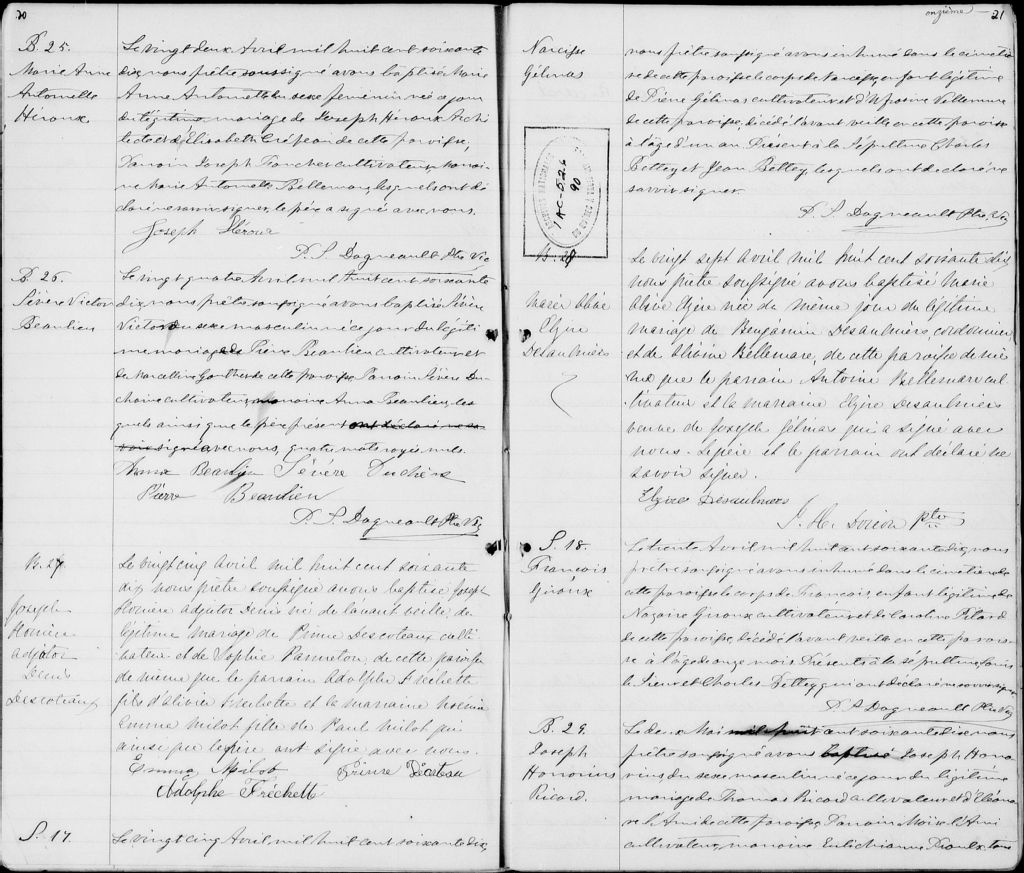 20
B. 25.
Marie Anne
Antoinette
Héroux
Le vingt deux Avril mil huit cent soixante
dix, nous prêtre soussigné avons baptisé Marie
Anne Antoinette du sexe feminin née ce jour
du légitime mariage de Joseph Héroux Archi
tecte et d'Elisabeth Crépeau de cette paroisse,
Parrain Joseph Foucher cultivateur, marrai
ne Marie Antoinette Bellemare, lesquels ont dé
claré ne savoir signer, le père a signé avec nous.
Joseph Héroux
D. S. Dagneault Ptre Vic
B. 26.
Sévère Victor
Beaulieu
Le vingt quatre Avril mil huit cent soixante
dix nous prêtre soussigné avons baptisé Sévère
Victor du sexe masculin né ce jour du légiti
me mariage de Pierre Beaulieu cultivateur et
de Marcelline Gauthier de cette paroisse Parrain Sévère Du
chaine cultivateur, marraine Anna Beaulieu, les
quels ainsi que le père présent ont déclaré ne sa
voir signé avec nous, quatre mots rayés nuls.
Anna Beaulieu Sévère Duchène
Pierre Beaulieu
D. S. Dagneault Ptre Vic
B. 27
Joseph
Honoré
adjutor
Denis
Descoteaux
Le vingt cinq Avril mil huit cent soixante
dix nous prêtre soussigné avons baptisé Joseph
Honoré adjutor Denis né de lavant veille, du
légitime mariage de Pierre Descoteaux culti
vateur et de Sophie Panneton, de cette paroisse
de même que le parrain Adolphe Frechette
fils d'Olivier Frechette et la marraine
Emma Milot fille de Paul Milot qui
ainsi que le père ont signé avec nous.
Emma Milot Pierre Decoteau
Adolphe Fréchette
S. 17
Le vingt cinq Avril, mil huit cent soixante dix,
onzième — 21
Narcisse
Gélinas
nous prêtre soussigné avons inhumé dans le cimetiè
re de cette paroisse le corps de Narcisse, enfant légitime
de Pierre Gélinas cultivateur et d'Euprosine Bellemare
de cette paroisse, décédé l'avant veille en cette paroisse
à l'âge d'un an. Présent à la Sépulture Charles
Bettey et Jean Bettey, lesquels ont déclaré ne
savoir signer.
D. S. Dagneault Ptre Vic
1AC-5.2.6
90
B. 28
Marie Olive
Elzire
Desaulniers
Le vingt sept avril mil huit cent soixante dix
nous prêtre soussigné avons baptisé Marie
Olive Elzire née de même jour du légitime
mariage de Benjamin Desaulniers, cordonnier
et de Olivine Bellemare, de cette paroisse de mê
me que le parrain Antoine Bellemare cul
tivateur et la marraine Elzire Desaulniers
veuve de Joseph Gélinas qui a signé avec
nous. Le père et le parrain ont déclaré ne
savoir signer.
Elzire Desaulniers
J. H. Dorion ptre
S. 18.
François
Giroux
Le trente Avril mil huit cent soixante dix nous
prêtre soussigné avons inhumé dans le cimetière de
cette paroisse le corps de Francois enfant légitime de
Nazaire Giroux cultivateur et de Caroline Pelard
de cette paroisse, décédé l'avant veille en cette parois
se à l'âge de onze mois. Présents à la sépulture Louis
le Sieur et Charles Bettey qui ont déclaré ne savoir signer
D. S. Dagneault Ptre Vic
B. 29.
Joseph
Honorius
Ricard.
Le deux Mai mil huit cent soixante dix nous
prêtre soussigné avons baptisé Joseph Hono
rius du sexe masculin né ce jour du légitime
mariage de Thomas Ricard cultivateur et d'Eléono
re l'Ami de cette paroisse, Parrain Moïse l'Ami
cultivateur, marraine